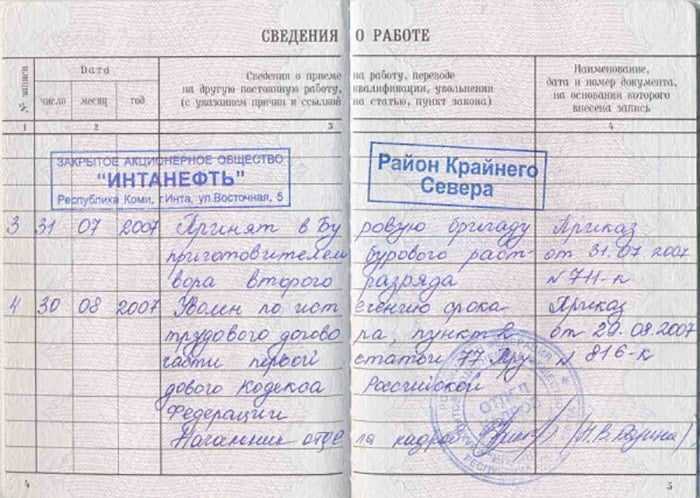 СВЕДЕНИЯ О РАБОТЕ
№ записи
Дата
число месяц год
Сведения о приеме на работу, переводе
на другую постоянную работу, квалификации, увольнении
(с указанием причин и ссылкой на статью, пункт закона)
Наименование,
дата и номер документа,
на основании которого
внесена запись
1 2 3 4
ЗАКРЫТОЕ АКЦИОНЕРНОЕ ОБЩЕСТВО
"ИНТАНЕФТЬ"
Республика Коми, г.Инта, ул.Восточная, 5
Район Крайнего
Севера
3 31 07 2007 Принят в Буровую бригаду Приказ
приготовителем бурового раст- от 31.07.2007
вора второго разряда №711-к
4 30 08 2007 Уволен по истечению срока Приказ
трудового договора, пункт 2 от 29.08.2007
части первой статьи 77 Тру №816-к
дового Кодекса Российской
Федерации
Начальник отдела кадров
ОТДЕЛ
КАДРОВ
4
5